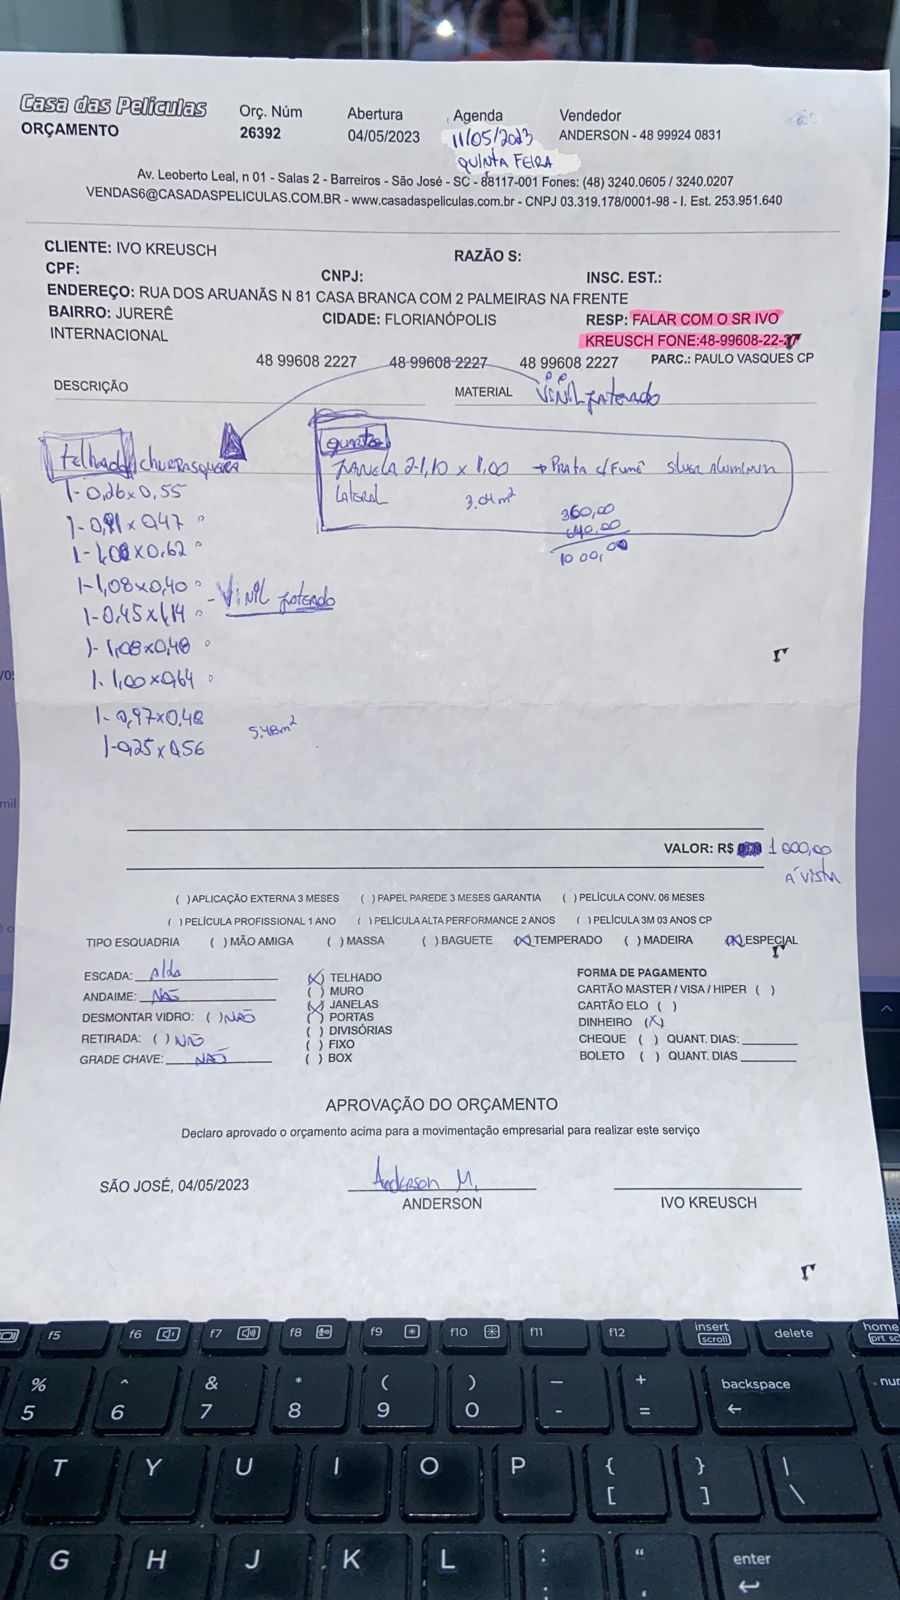 Casa das Películas
ORÇAMENTO
Orç. Núm
26392
Abertura
04/05/2023
Agenda
11/05/2023
QUINTA FEIRA
Vendedor
ANDERSON - 48 99924 0831
Av. Leoberto Leal, n 01 - Salas 2 - Barreiros - São José - SC - 88117-001 Fones: (48) 3240.0605 / 3240.0207
VENDAS6@CASADASPELICULAS.COM.BR - www.casadaspeliculas.com.br - CNPJ 03.319.178/0001-98 - I. Est. 253.951.640
CLIENTE: IVO KREUSCH
RAZÃO S:
CPF:
CNPJ:
INSC. EST.:
ENDEREÇO: RUA DOS ARUANÃS N 81 CASA BRANCA COM 2 PALMEIRAS NA FRENTE
BAIRRO: JURERÊ INTERNACIONAL
CIDADE: FLORIANÓPOLIS
RESP: FALAR COM O SR IVO
KREUSCH FONE:48-99608-22-27
48 99608 2227 48 99608 2227 48 99608 2227
PARC.: PAULO VASQUES CP
DESCRIÇÃO
MATERIAL
VINIL jateado
telhado churrasqueira
1- 0,26 x 0,55
1- 0,91 x 0,47
1- 1,08 x 0,62
1- 1,08 x 0,40
1- 0,45 x 1,14
1- 1,08 x 0,48
1- 1,00 x 0,64
1- 0,97 x 0,48
1- 0,25 x 0,56
5.48m²
- Vinil jateado
quarto
JANELA 2-1,10 x 1,00 → PRATA c/FUMÊ
LATERAL
3.04m²
360,00
640,00
1000,00
VALOR: R$ 1 000,00
À VISTA
( ) APLICAÇÃO EXTERNA 3 MESES ( ) PAPEL PAREDE 3 MESES GARANTIA ( ) PELÍCULA CONV. 06 MESES
( ) PELÍCULA PROFISSIONAL 1 ANO ( ) PELÍCULA ALTA PERFORMANCE 2 ANOS ( ) PELÍCULA 3M 03 ANOS CP
TIPO ESQUADRIA ( ) MÃO AMIGA ( ) MASSA ( ) BAGUETE (X) TEMPERADO ( ) MADEIRA (X) ESPECIAL
ESCADA: Alda
ANDAIME: NÃO
DESMONTAR VIDRO: ( ) NÃO
RETIRADA: ( ) NÃO
GRADE CHAVE: NÃO
(X) TELHADO
( ) MURO
(X) JANELAS
( ) PORTAS
( ) DIVISÓRIAS
( ) FIXO
( ) BOX
FORMA DE PAGAMENTO
CARTÃO MASTER / VISA / HIPER ( )
CARTÃO ELO ( )
DINHEIRO (X)
CHEQUE ( ) QUANT. DIAS:
BOLETO ( ) QUANT. DIAS
APROVAÇÃO DO ORÇAMENTO
Declaro aprovado o orçamento acima para a movimentação empresarial para realizar este serviço
SÃO JOSÉ, 04/05/2023
Anderson M.
ANDERSON
IVO KREUSCH
f5 f6 f7 f8 f9 f10 f11 f12 insert delete home
(scroll)
% ^ & * ( ) — + backspace
5 6 7 8 9 0 - = ←
T Y U I O P { } |
[ ] \
G H J K L : “ enter
; ‘